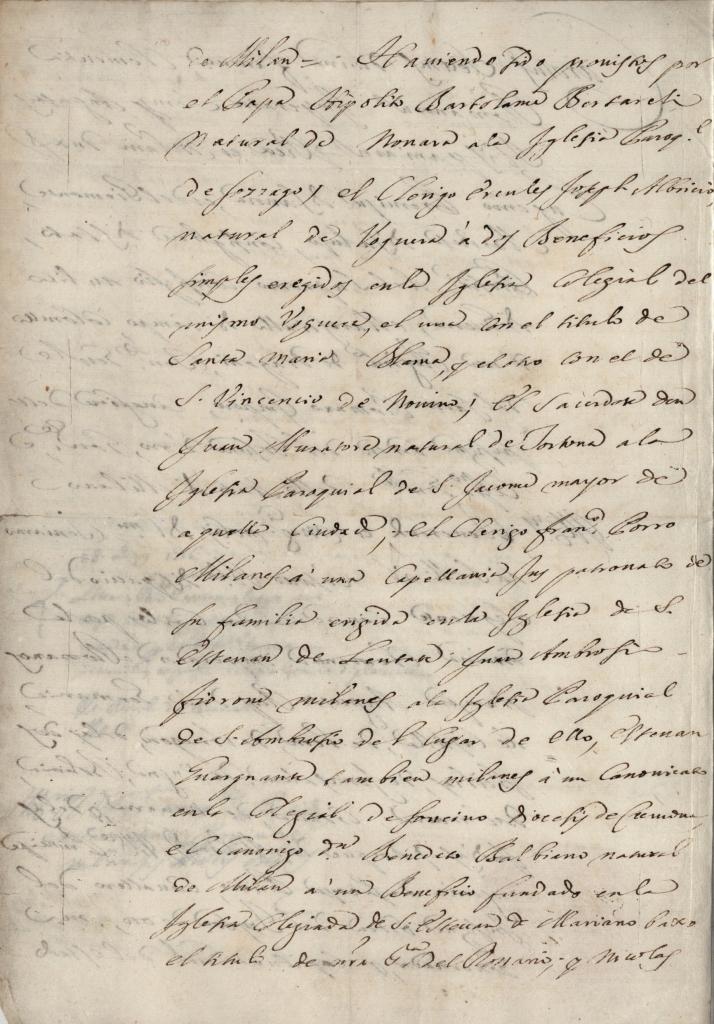 de Milan = Haviendo sido provistos por
el Papa Hipolito Bartolame Bertareli
natural de Novara a la Iglesia Paroq.l
de sozzago; el Clerigo Ercules Joseph
natural de Voguera á dos Beneficios
simples eregidos en la Iglesia Colegial del
mismo Voguera, el uno con el titulo de
Santa Maria Blama, y el otro con el de
S. Vincencio de Novino; El Sacerdote don
Juan Muratore natural de Tortona a la
Iglesia Paroquial de S. Jacome mayor de
aquella Ciudad; El Clerigo fran.co Porro
Milanes á una Capellania Jus patronato de
su familia erigida en la Iglesia de S.
Estevan de Lentate; Juan Ambrosio
fiorone milanes a la Iglesia Paroquial
de S. Ambrosio del lugar de ello, Estevan
Guargnante tambien milanes á un Canonicato
en la Colegial de soncino diocesis de Cremona,
el Canonigo d.n Benedeto Balbiano natural
de Milan á un Beneficio fundado en la
Iglesia Colegiada de S. Estevan de Mariano baxo
el titulo de nra S.ra del Rosario; y Nicolas